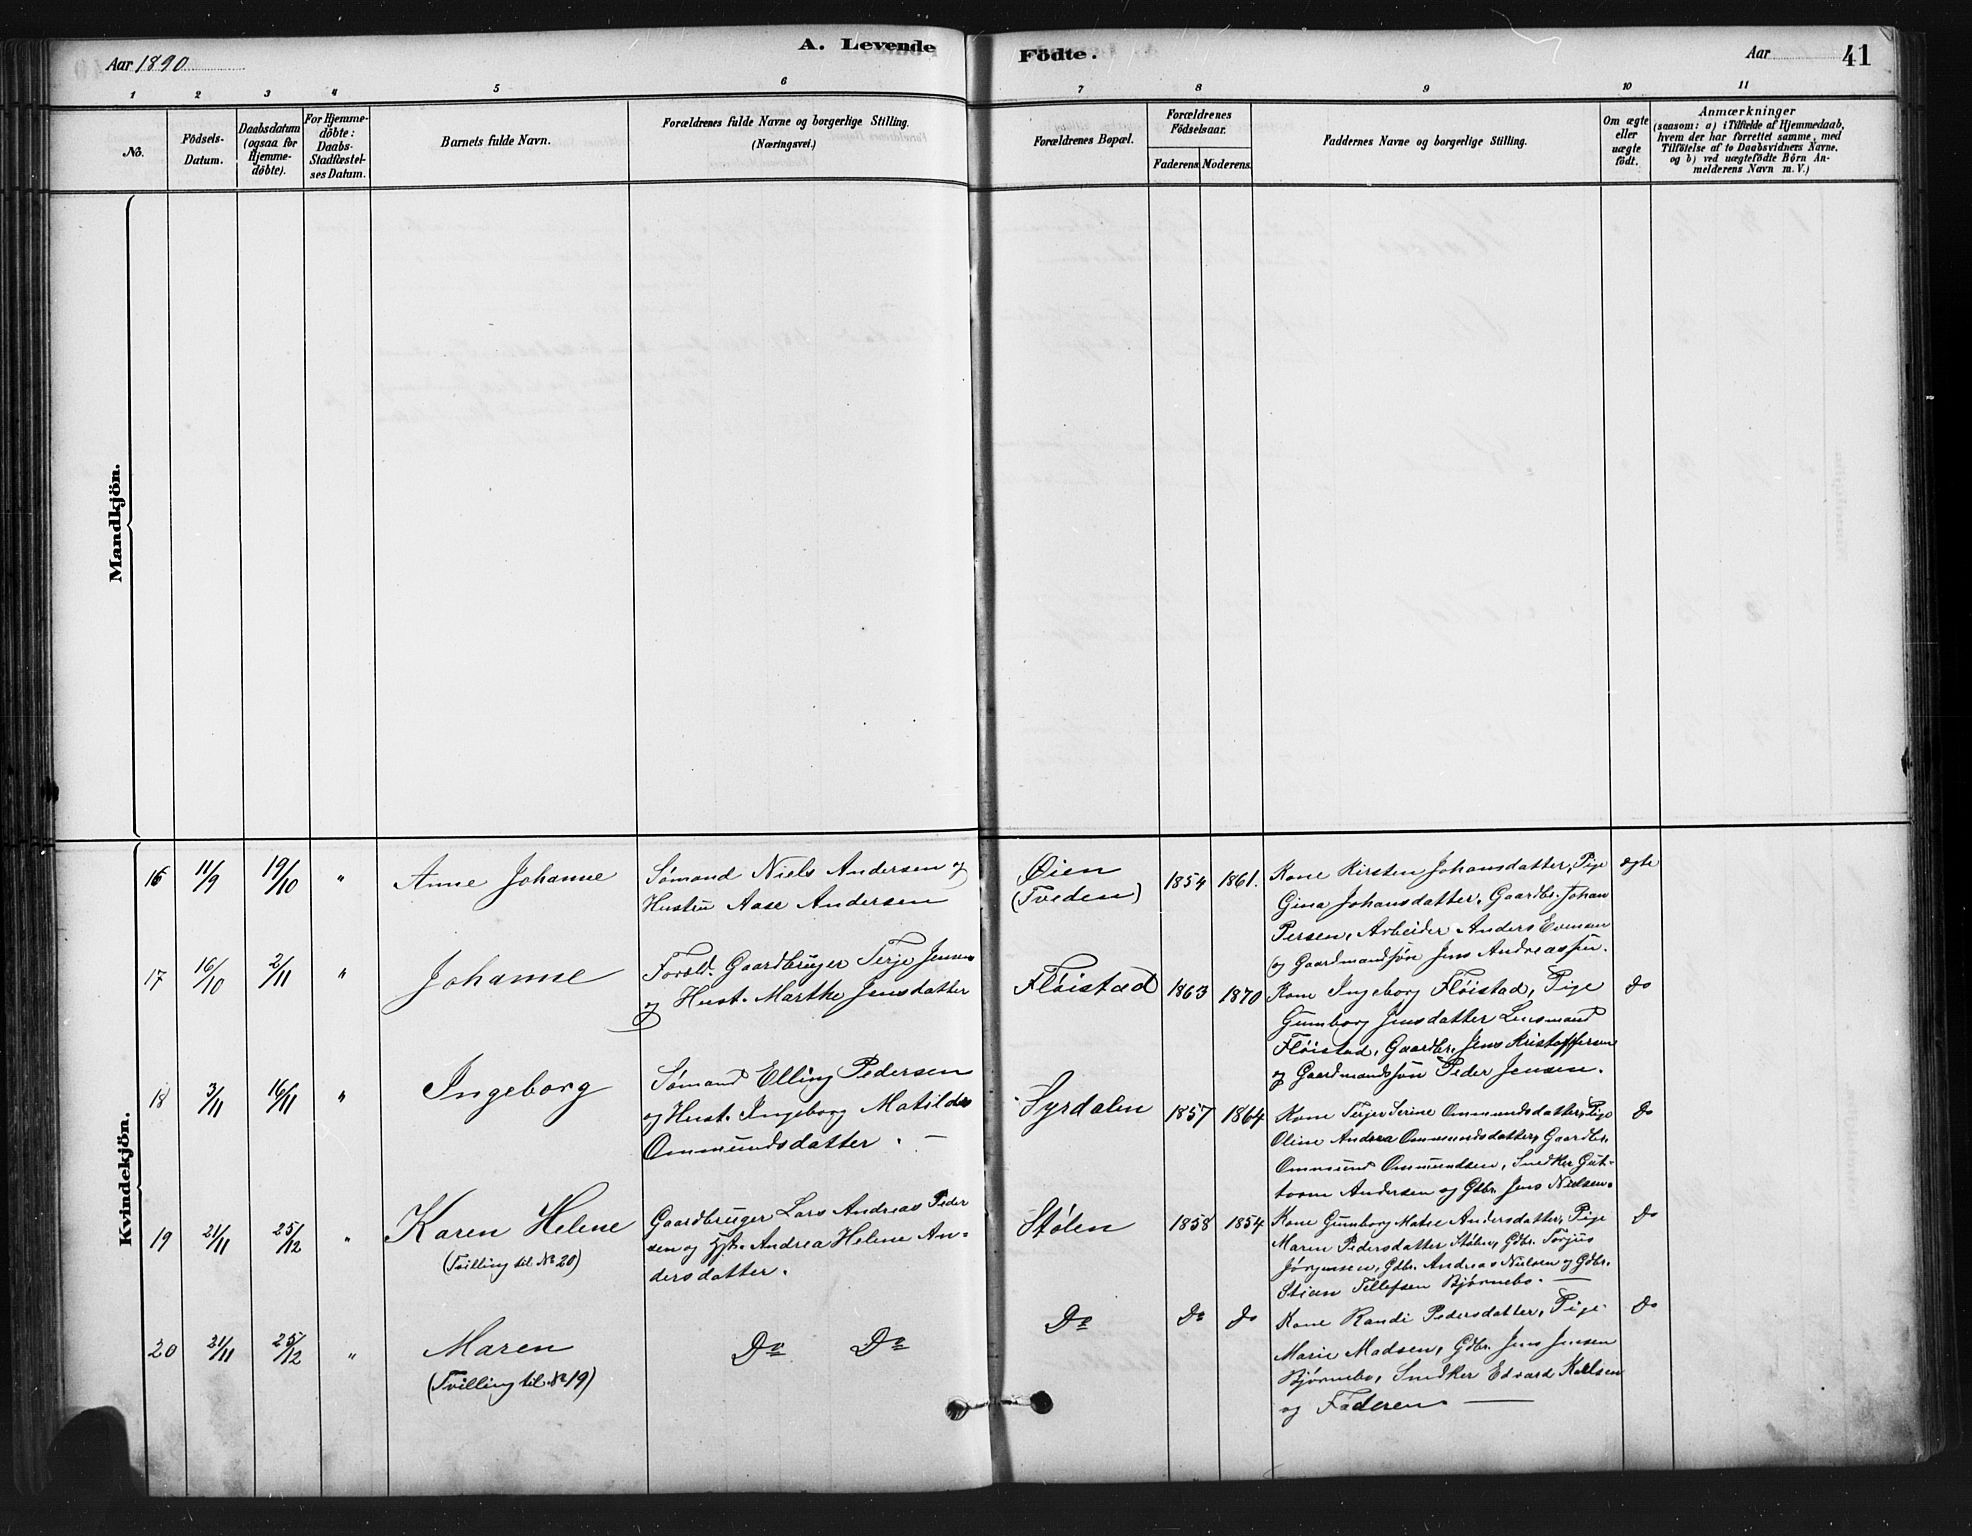 Aar 1890
A. Levende
Födte.
Aar
41
1
2
3
4
5
6
7
8
9
10
11
No.
Födsels-
Datum.
Daabsdatum
(ogsaa for
Hjemme-
döbte).
For Hjemme-
döbte:
Daabs-
Stadfæstel-
ses Datum.
Barnets fulde Navn.
Forældrenes fulde Navne og borgerlige Stilling.
(Næringsvei.)
Forældrenes Bopæl.
Forældrenes
Födselsaar.
Faderens.
Moderens.
Faddernes Navne og borgerlige Stilling.
Om ægte
eller
uægte
födt.
Anmærkninger
(saasom: a) i Tilfælde af Hjemmedaab,
hvem der har forrettet samme, med
Tilföielse af to Daabsvidners Navne,
og b) ved uægtefödte Börn An-
melderens Navn m. V.)
Mandkjön.
Kvindekjön.
16
11/9
19/10
"
Anne Johanne
Sømand Niels Andersen og
Hustru Aase Andersen
Øien
(Tveden)
1854
1861.
Kone Kirsten Johansdatter, Pige
Gina Johansdatter, Gaardbr. Johan
Persen, Arbeider Anders Evensen
og Gaardmandsøn Jens Andreassen.
ægte
17
16/10
2/11
"
Johanne
Foræld. Gaardbruger Terje Jensen
og Hust. Marthe Jensdatter
Fløistad
1863
1870
Kone Ingeborg Fløistad, Pige
Gunborg Jensdatter Lensmand
Fløistad, Gaardbr. Jens Kristoffersen
og Gaardmandsøn Peder Jensen.
do
18
3/11
16/11
"
Ingeborg
Sømand Elling Pedersen
og Hust. Ingeborg Matilde
Ommundsdatter. —
Syrdalen
1857
1864
Kone Terjer Serine Ommundsdatter, Pige
Oline Andrea Ommundsdatter, Gaardbr.
Ommund Ommundsen, Snedker Gut-
torm Andersen og Gdbr. Jens Nielsen.
do
19
21/11
25/12
"
Karen Helene
(Tvilling til No 20)
Gaardbruger Lars Andreas Peder
sen og Hst. Andrea Helene An-
dersdatter.
Stølen
1858
1854
Kone Gunborg Matie Andersdatter, Pige
Maren Pedersdatter Stølen, Gdbr. Torjus
Jørgensen, Gdbr. Andreas Nielsen og Gdbr.
Stian Tellefsen Bjørnebo. —
do
20
21/11
25/12
"
Maren
(Tvilling til No 19)
Do Do
Do
Do
do
Kone Randi Pedersdatter, Pige
Marie Madsen, Gdbr. Jens Jensen
Bjørnebo, Snedker Edvard Karlsen
og Faderen. —
do